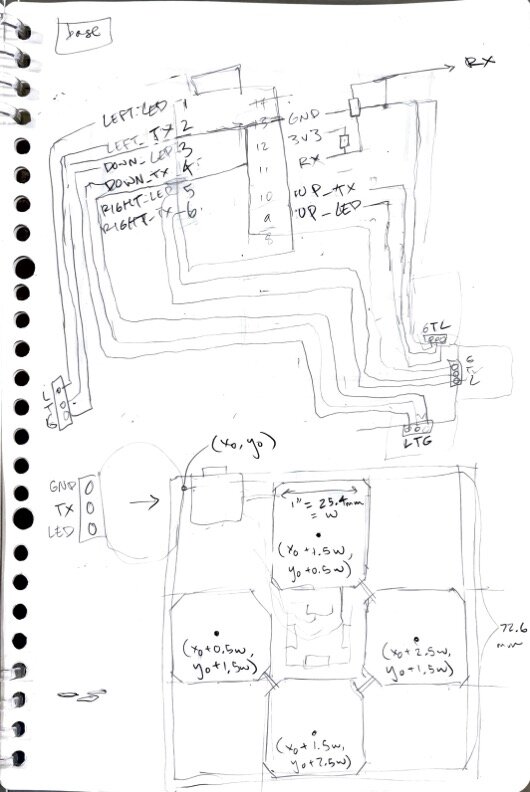 base
RX
LEFT-LED 1
LEFT_TX 2
DOWN_LED 3
DOWN_TX 4
RIGHT-LED 5
RIGHT-TX 6
14
13
12
11
10
9
8
GND
3V3
RX
UP_TX
UP_LED
GTL
G
T
L
L
T
G
LTG
(x0, y0)
GND
TX
LED
1" = 25.4mm
= w
(x0 + 1.5w,
y0 + 0.5w)
(x0 + 0.5w,
y0 + 1.5w)
(x0 + 2.5w,
y0 + 1.5w)
(x0 + 1.5w,
y0 + 2.5w)
mm